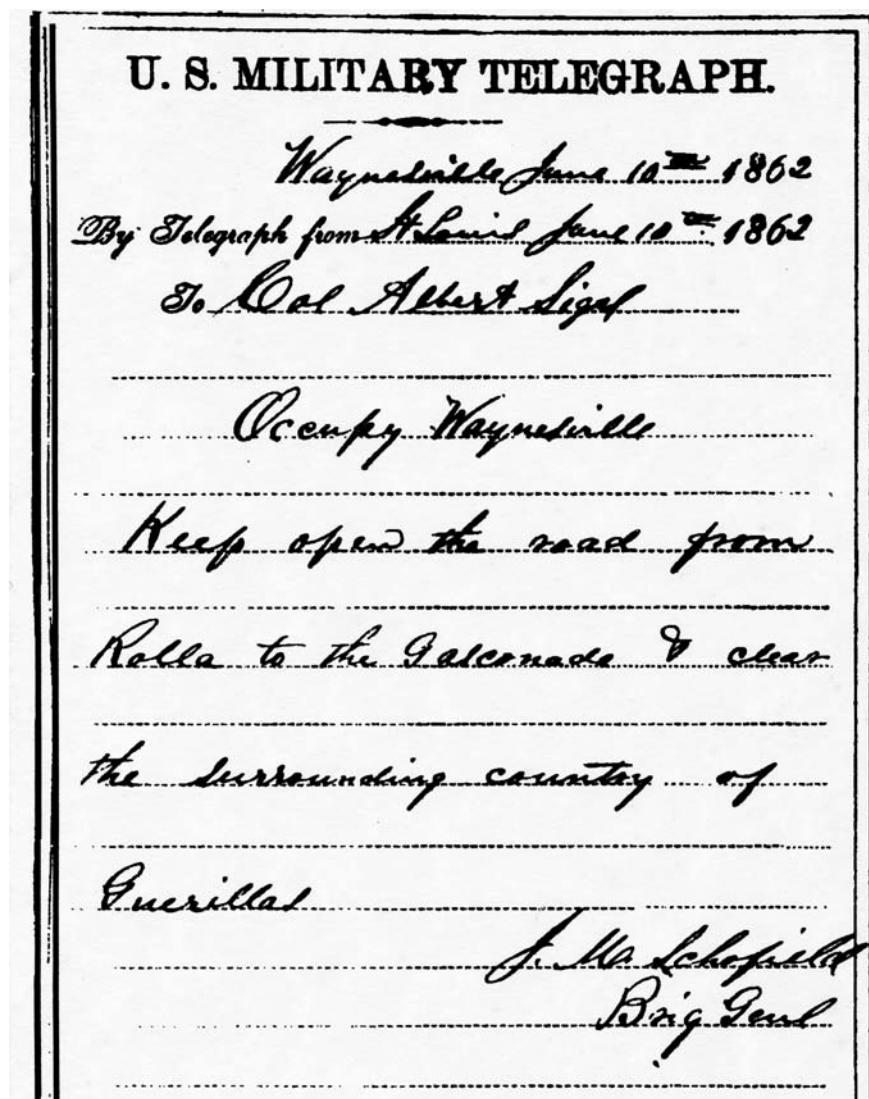 U. S. MILITARY TELEGRAPH.
Waynesville June 10th 1862
By Telegraph from St Louis June 10th 1862
To Col Albert Sigel
Occupy Waynesville
Keep open the road from
Rolla to the Gasconade & clear
the surrounding country of
Guerillas
J. M. Schofield
Brig Genl